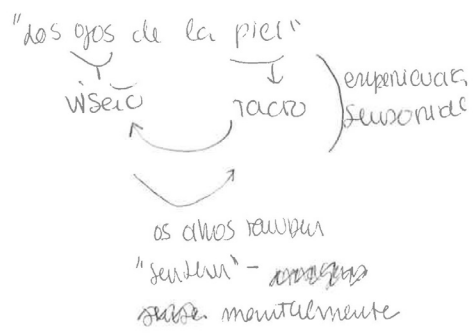 "Los ojos de la piel"
visão tacto
experiencias
sensoriais
os olhos também
"sentem" -
mentalmente